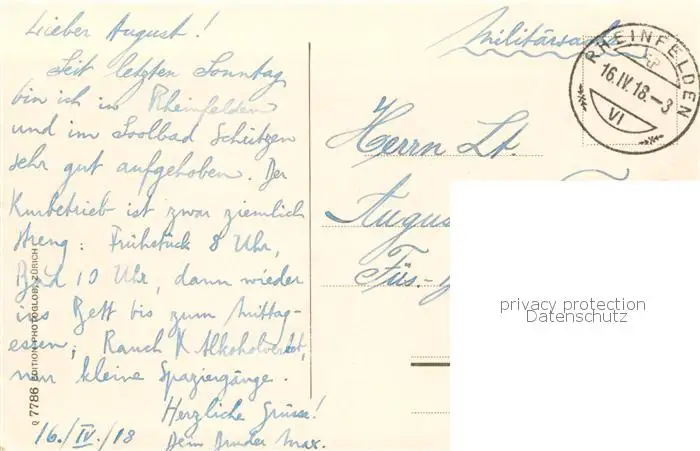 Lieber August!
Seit letzten Sonntag
bin ich in Rheinfelden
und im Soolbad Schützen
sehr gut aufgehoben. Der
Kurbetrieb ist zwar ziemlich
streng: Frühstück 8 Uhr,
Bad 10 Uhr, dann wieder
ins Bett bis zum Mittag-
essen, Rauch & Alkoholverbot,
nur kleine Spaziergänge.
Herzliche Grüsse!
16./IV./18 Dein Bruder Max.
Q 7786 EDITION PHOTOGLOB, ZÜRICH
Militärsache
RHEINFELDEN
16.IV.18.–3
VI
Herrn Lt.
August
Füs.-
privacy protection
Datenschutz